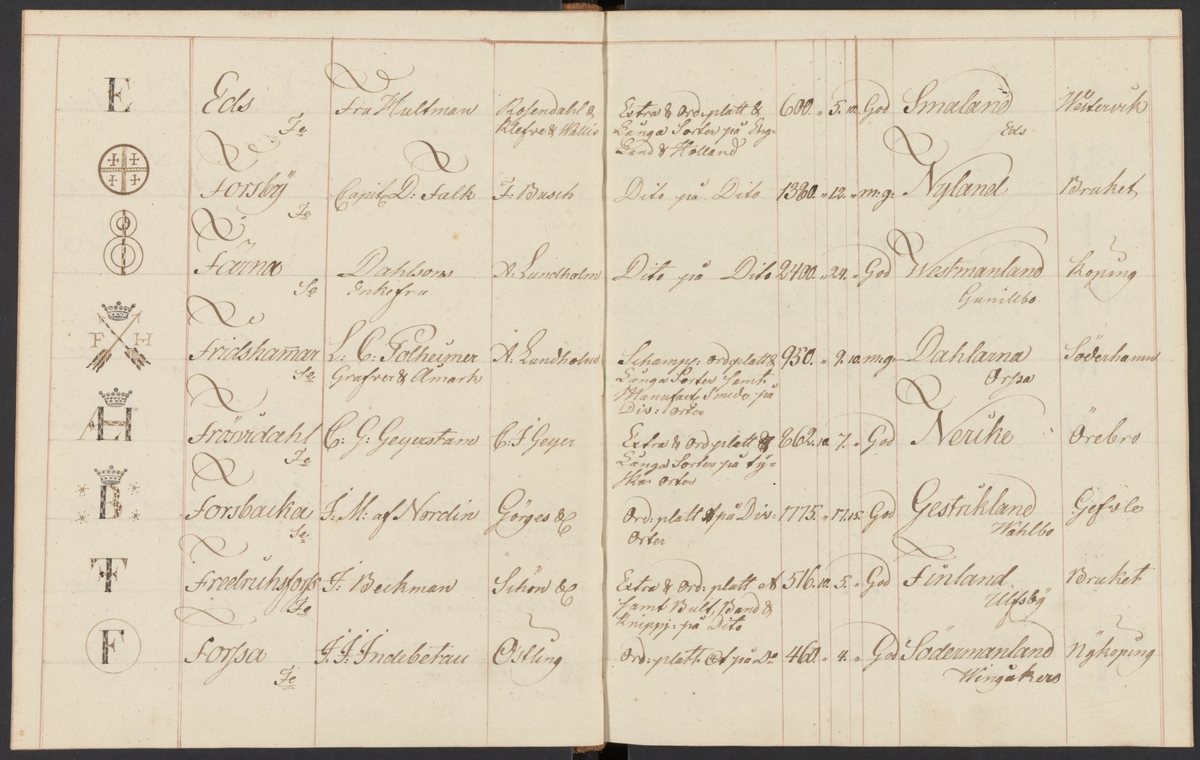 E Eds Fru Hultman Rosendahl & Extra & Ord: platt & 600. „ 5. 10. God Småland Westervik
Je Klefve & Willis Långa Sorter på Eng- Eds
land & Holland
Forsbÿ Capit: D: Falk F: Busch Dito på Dito 1380. „ 12. „ m:g: Nyland Bruket
Je
Färna Dahlsons A: Lundholm Dito på Dito 2400. „ 24. „ God Westmanland Köping
Se Enkefru Gunilbo
F H Fridshamar L: C: Polheimer A: Lundholm Schamp: ord: platt & 950. „ 9. 10. m:g: Dahlarna Söderhamn
Se Grafver & Åmark Långa Sorter samt Orsa
Manufact. Smide på
Div: Orter
H Fröverdahl C: G: Geyerstam C: J Geyer Extra & Ord: platt & 862. 10. 7. „ God Nerike Örebro
Je Långa Sorter på ty-
ska Orter
B Forsbacka J: M: af Nordin Görges & C Ord: platt på Div: 1775. „ 17. 15. God Gestrikland Gefvle
Se Orter Wahlbo
T Fredrichsforss J: Beckman Schön & C Extra & Ord: platt 516. 10. 5. „ God Finland Bruket
Je samt Bult, Band & Ulfsbÿ
Knippj: på Dito
F Forssa J: J: Indebetou Östling Ord: platt på Do 460. „ 4. „ God Södermanland Nÿköping
Je Wingåkers